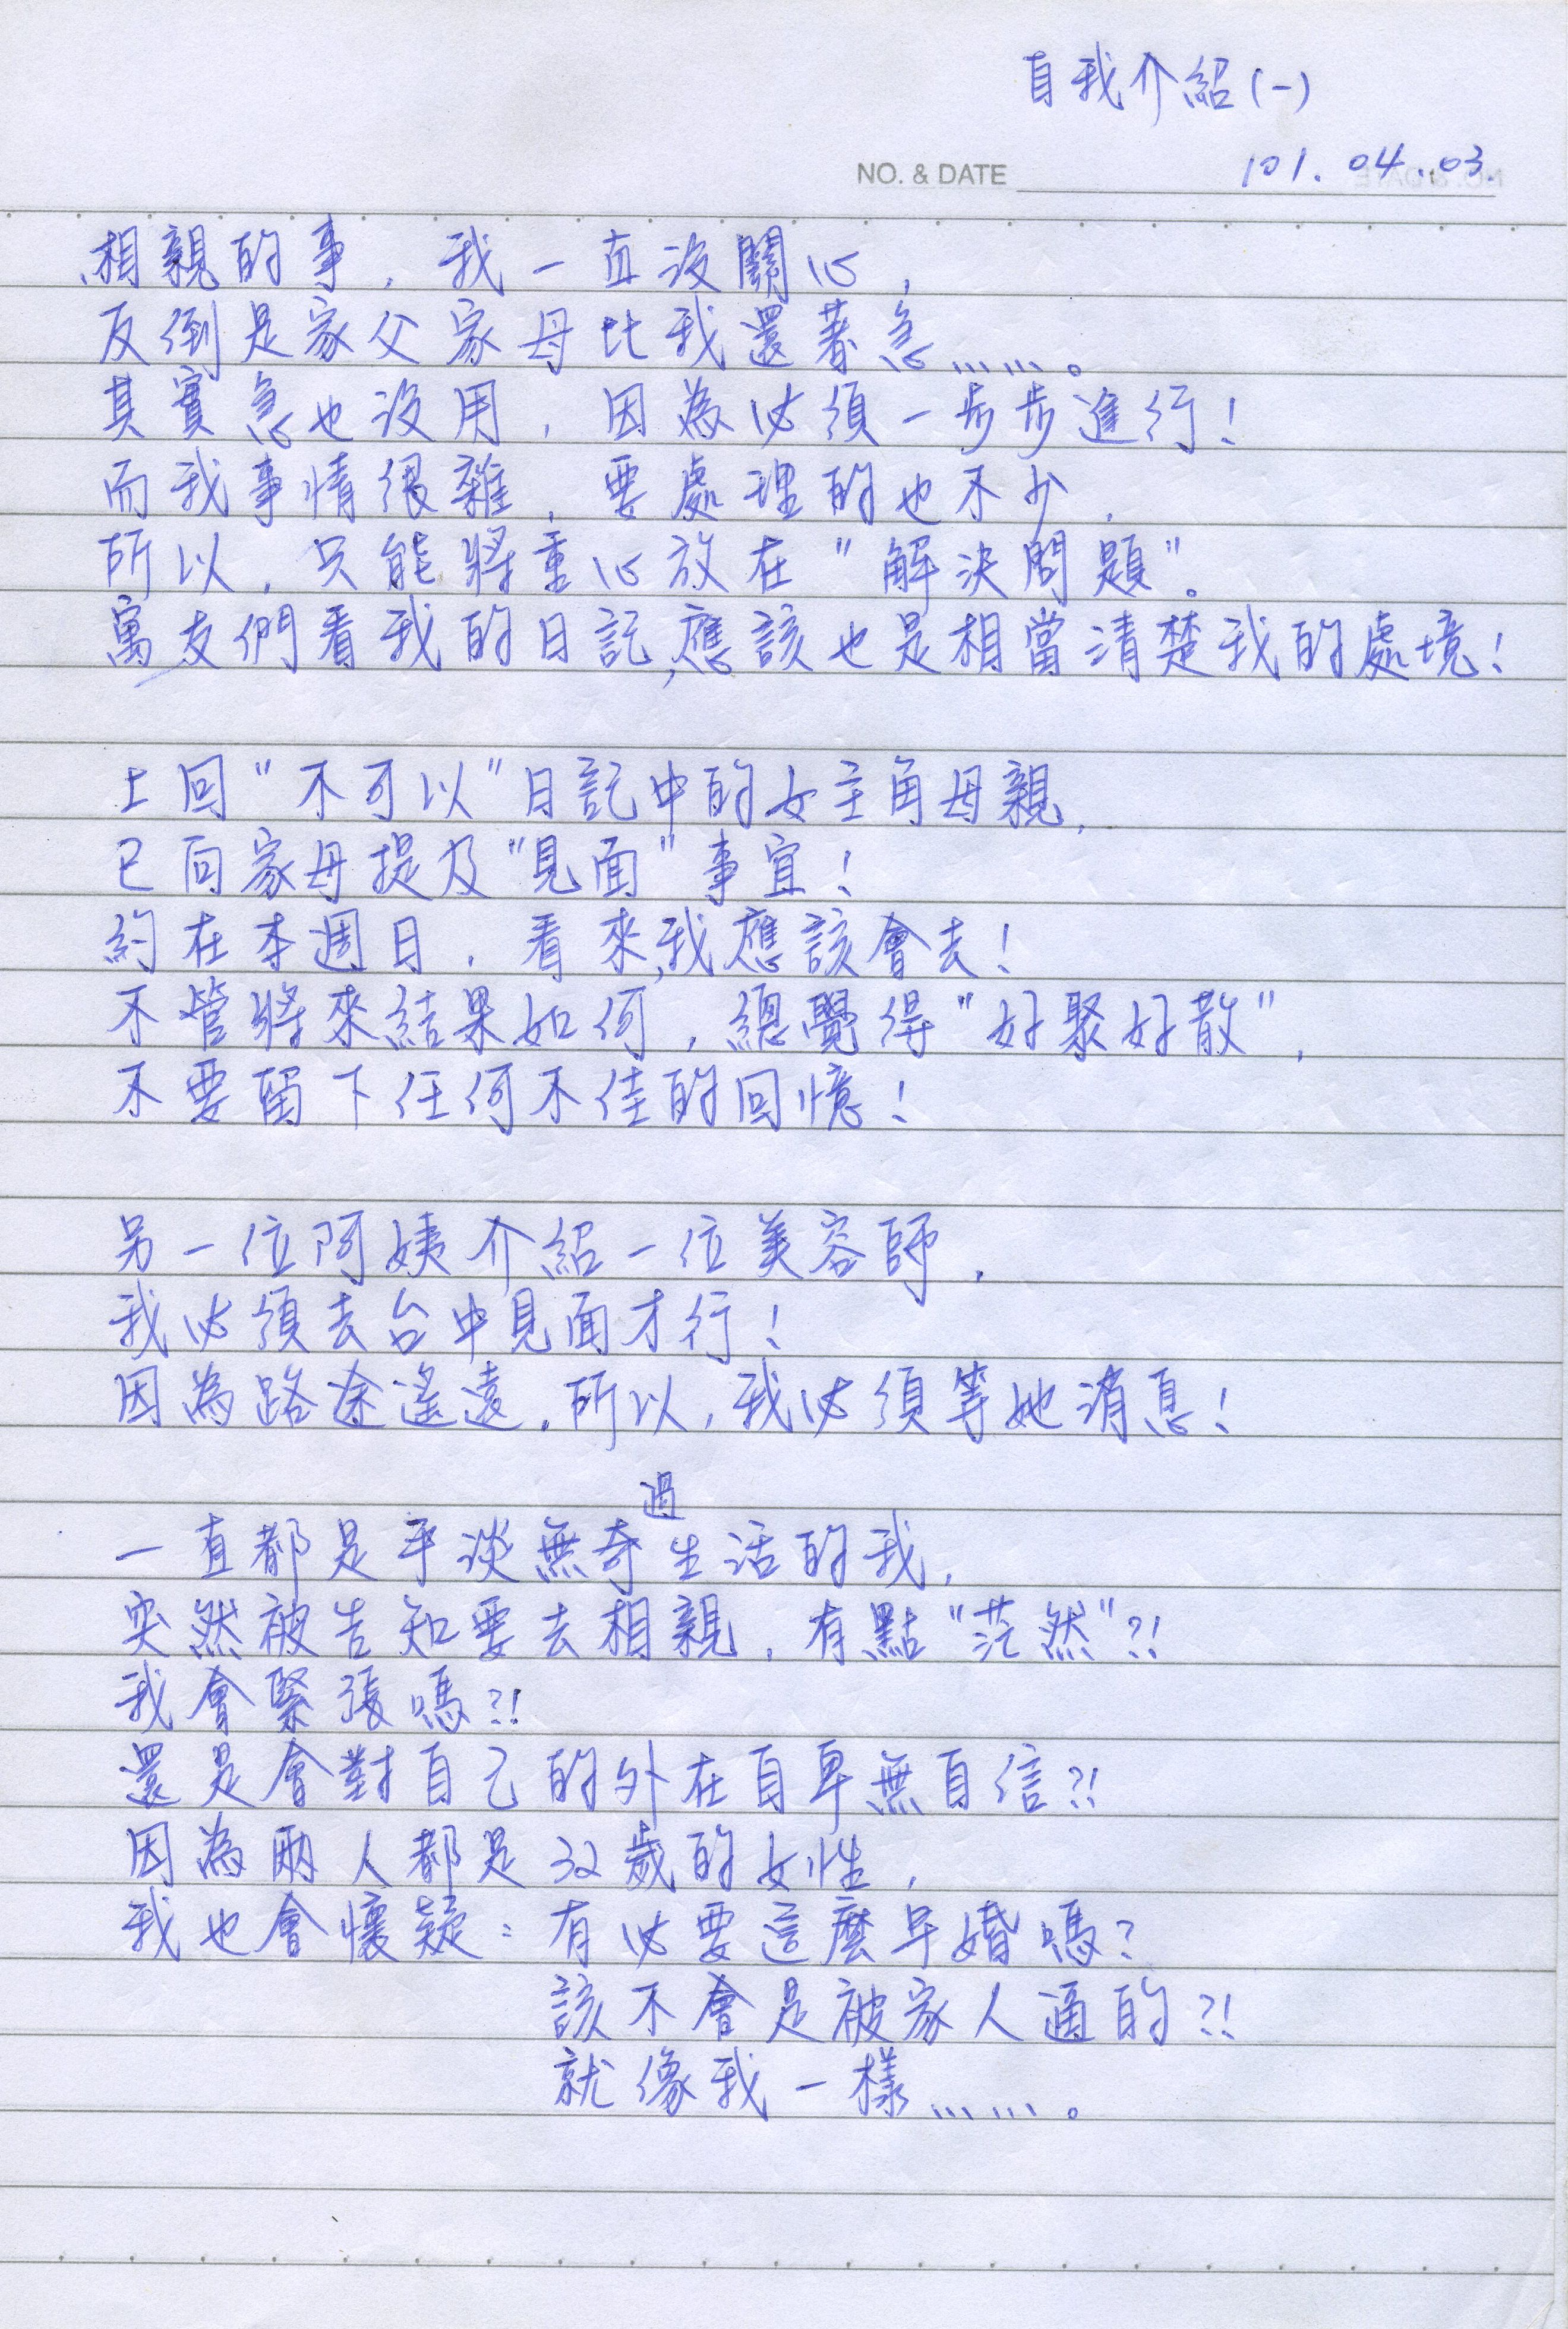 自我介紹(一)
NO. & DATE 101.04.03.
相親的事,我一直沒關心,
反倒是家父家母比我還著急……。
其實急也沒用,因為必須一步步進行!
而我事情很雜,要處理的也不少,
所以,只能將重心放在"解決問題"。
寓友們看我的日記,應該也是相當清楚我的處境!
上回"不可以"日記中的女主角母親,
已向家母提及"見面"事宜!
約在本週日,看來,我應該會去!
不管將來結果如何,總覺得"好聚好散",
不要留下任何不佳的回憶!
另一位阿姨介紹一位美容師,
我必須去台中見面才行!
因為路途遙遠,所以,我必須等她消息!
一直都是平淡無奇過生活的我,
突然被告知要去相親,有點"茫然"?!
我會緊張嗎?!
還是會對自己的外在自卑無自信?!
因為兩人都是32歲的女性,
我也會懷疑:有必要這麼早婚嗎?
該不會是被家人逼的?!
就像我一樣……。